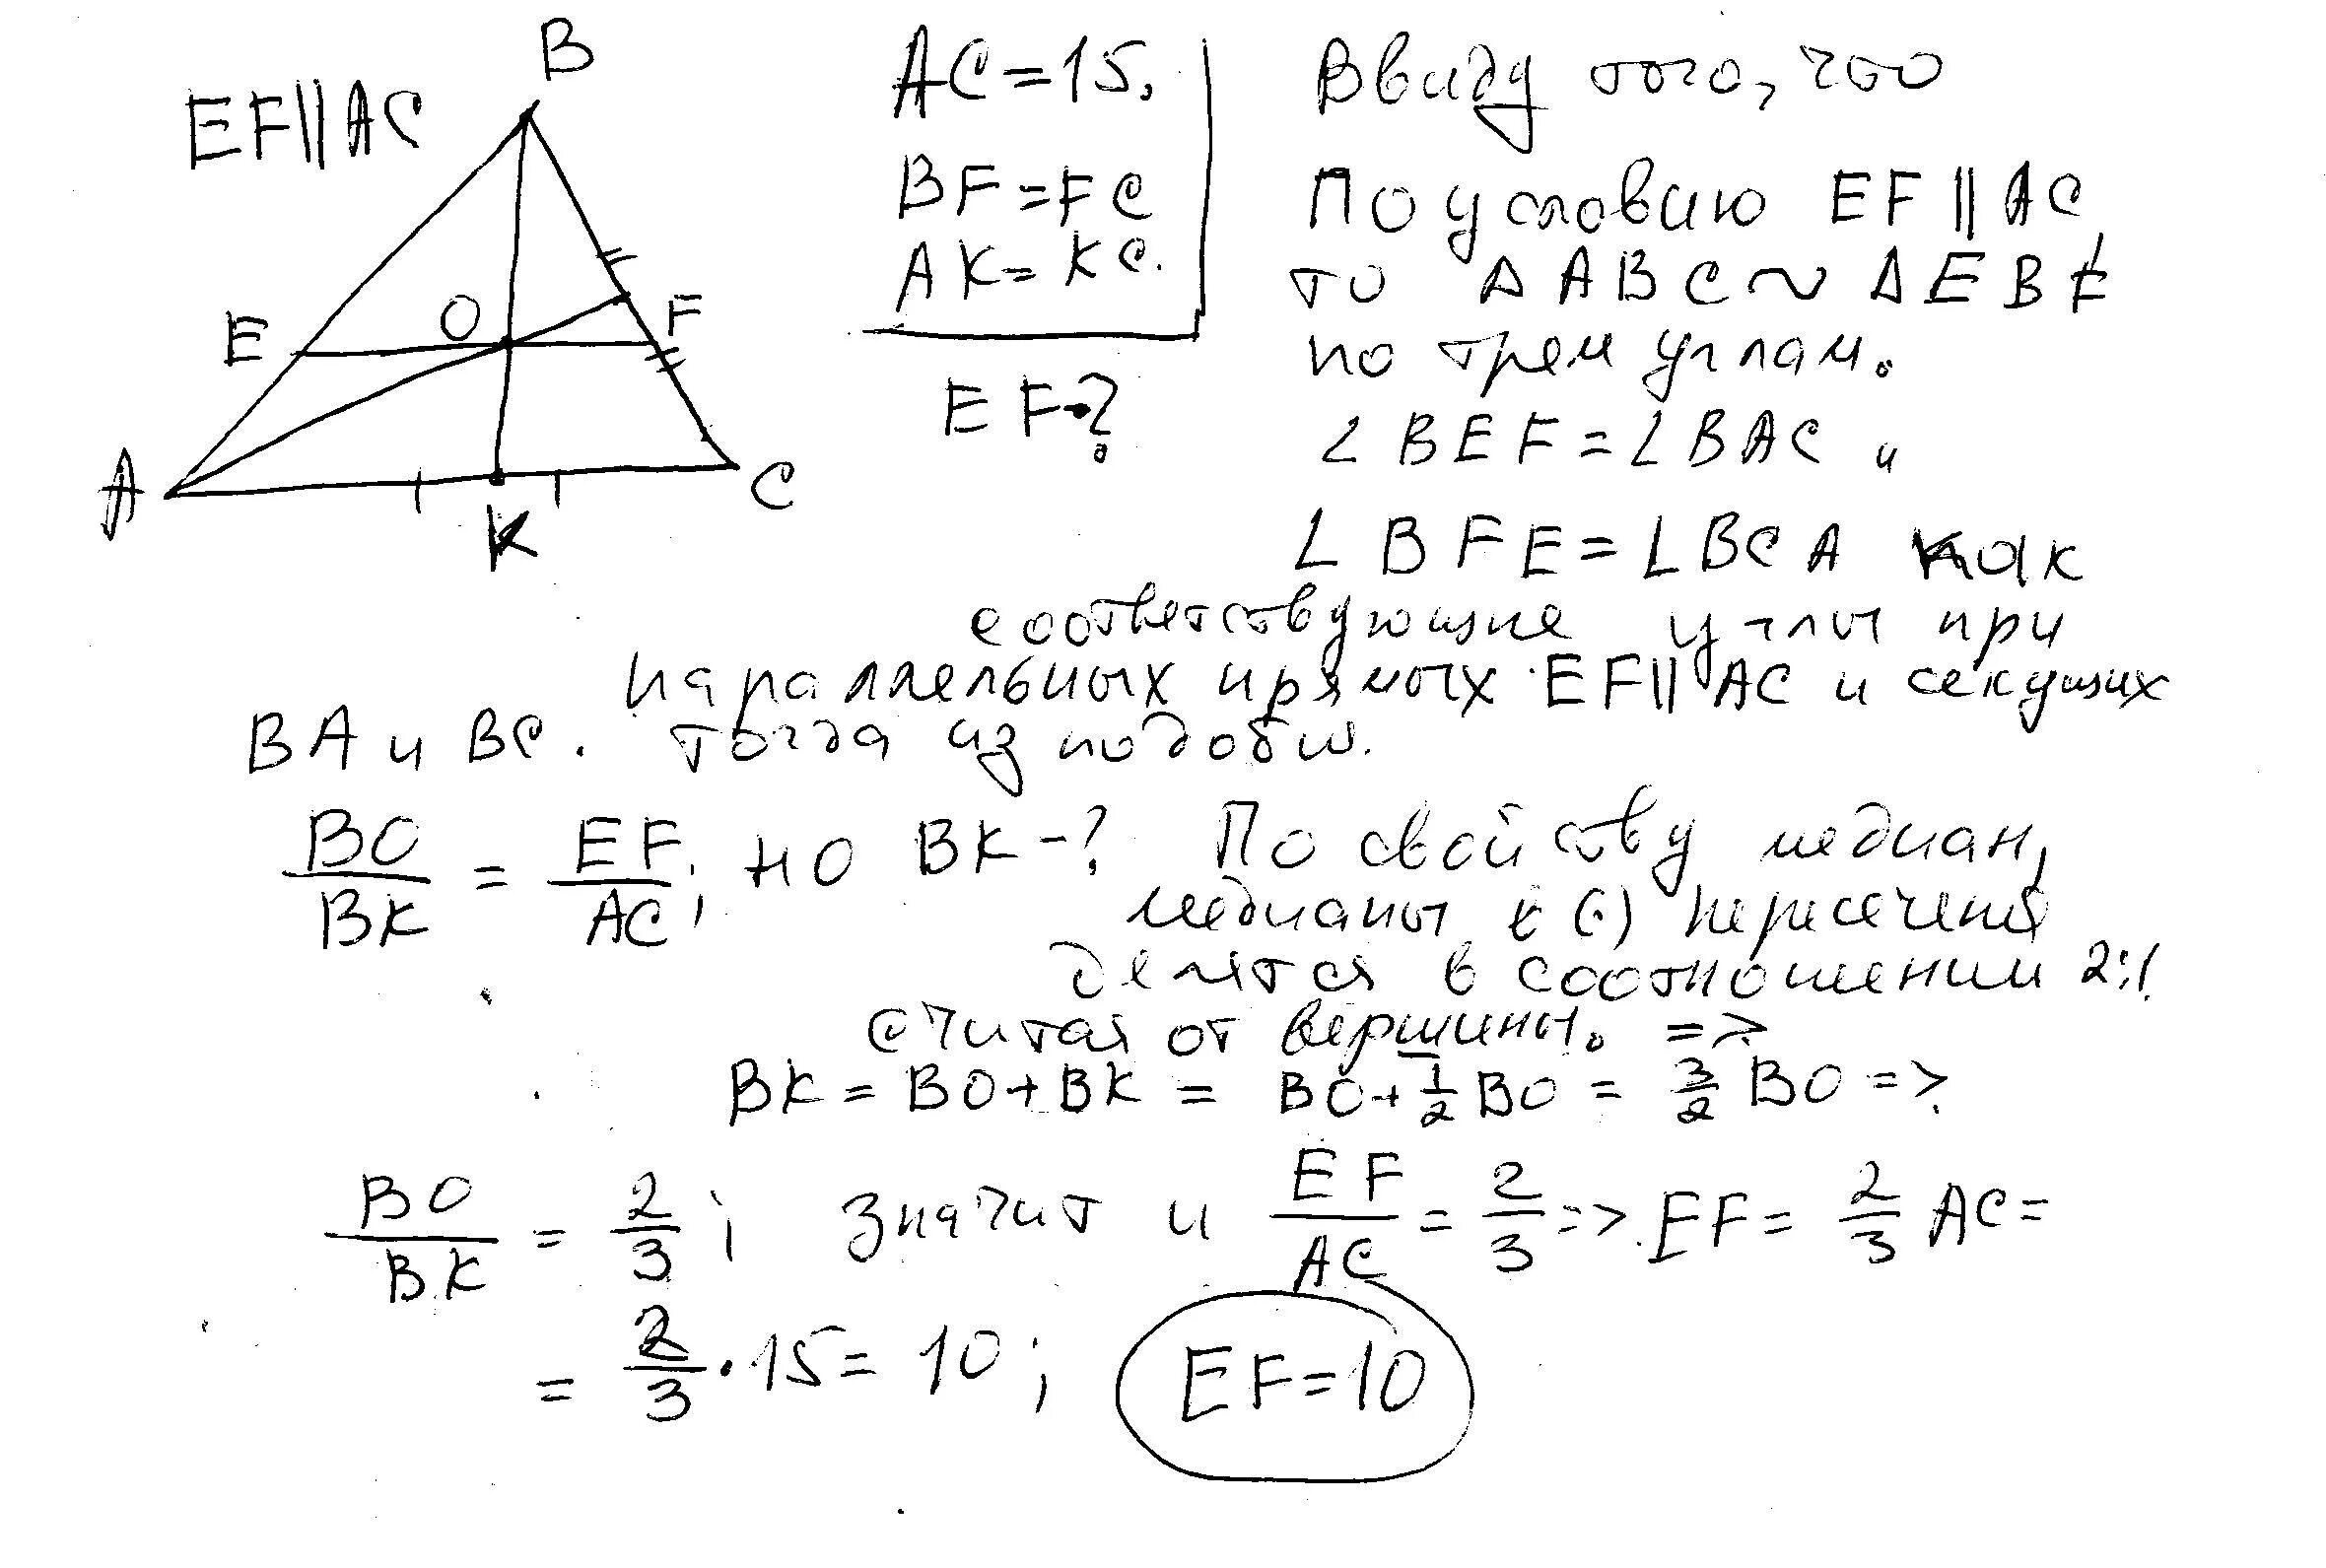 B
EF||AC
E
O
F
A
K
C
AC=15.
BF=FC
AK=KC.
EF-?
Ввиду того, что
По условию EF || AC,
то Δ ABC ~ Δ EBF
по трем углам.
∠ BEF = ∠ BAC и
∠ BFE = ∠ BCA как
соответствующие углы при
параллельных прямых EF || AC и секущих
BA и BC. Тогда из подобия.
BO/BK = EF/AC; но BK-? По свойству медиан,
медианы в (·) пересечения
делятся в соотношении 2:1.
считая от вершины. =>
BK = BO + BK = BO + 1/2 BO = 3/2 BO =>
BO/BK = 2/3; значит и EF/AC = 2/3 => EF = 2/3 AC =
= 2/3 · 15 = 10; EF=10